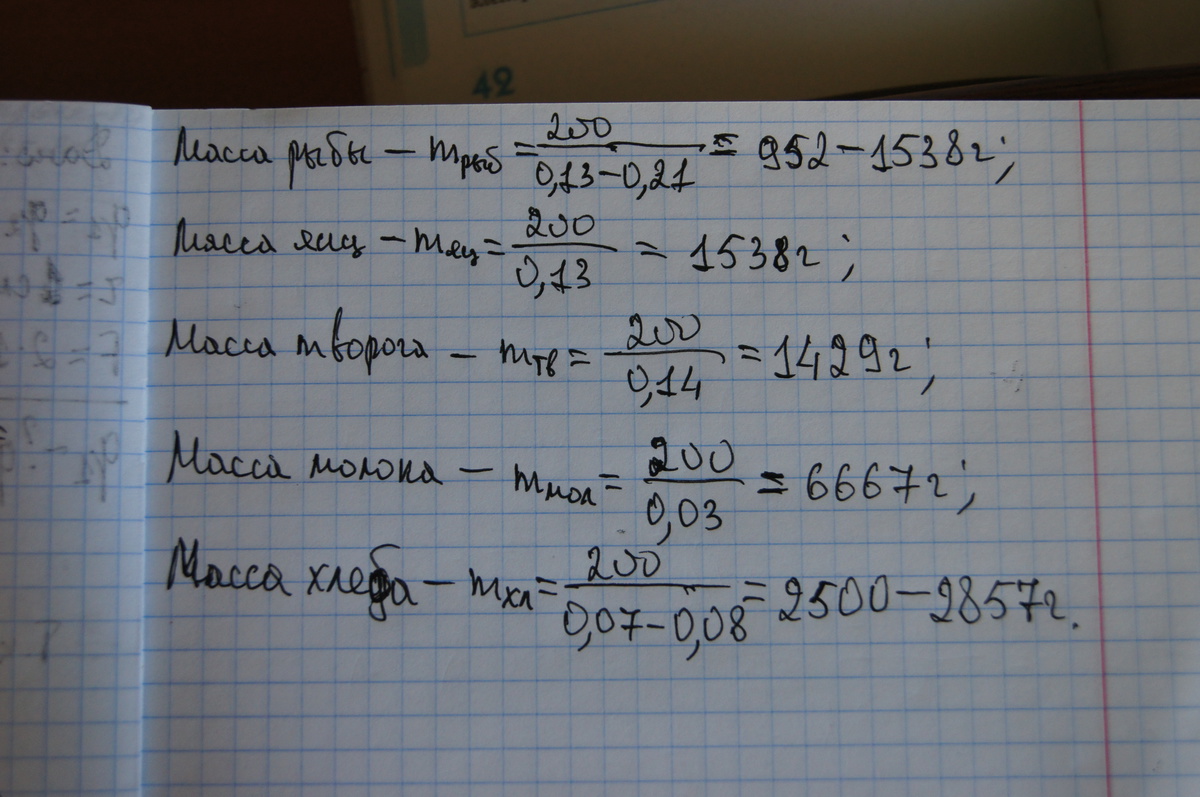 42
Масса рыбы – mрыб = 200 / 0,13–0,21 = 952–1538г;
Масса яиц – mяц = 200 / 0,13 = 1538г;
Масса творога – mтв = 200 / 0,14 = 1429г;
Масса молока – mмол = 200 / 0,03 = 6667г;
Масса хлеба – mхл = 200 / 0,07–0,08 = 2500–2857г.